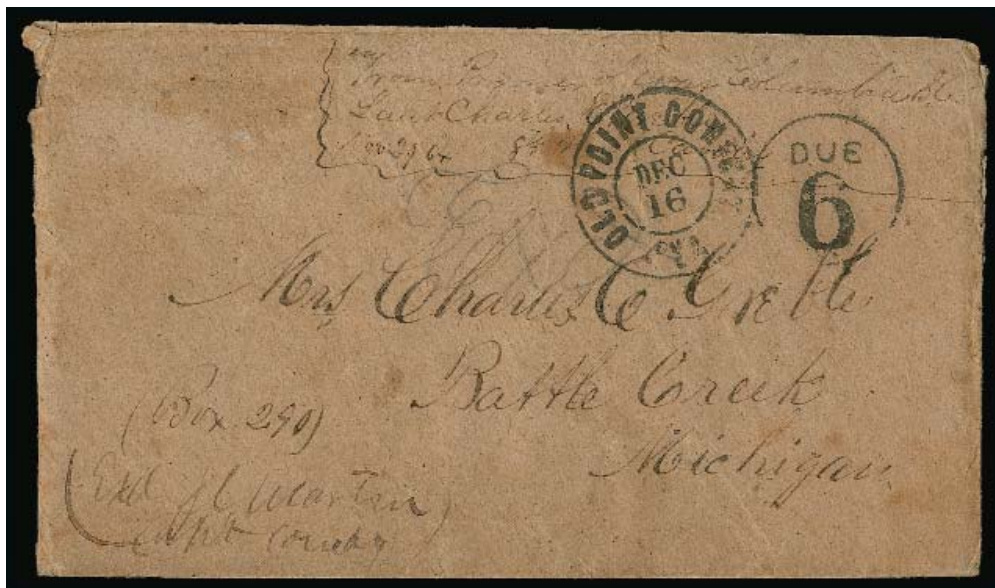 From Prisoner of War Columbia S.C.
Lieut Charles
OLD POINT COMFORT
DEC
16
VA.
DUE
6
Mrs Charles C Greble
Battle Creek
Michigan
(Box 290)
Exd J C Martin
Capt Comdg